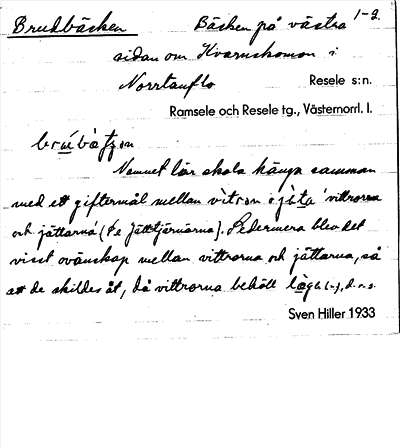 Brudbäcken Bäcken på västra 1-2.
sidan om Kvarnkomon i
Norrtanflo Resele s:n.
Ramsele och Resele tg., Västernorrl. l.
Namnet lär skola hänga samman
med ett giftermål mellan vittrorna
och jättarna (se Jättjärnarna). Sedermera blev det
visst ovänskap mellan vittrorna och jättarna, så
att de skildes åt, då vittrorna behöll d.v.s.
Sven Hiller 1933